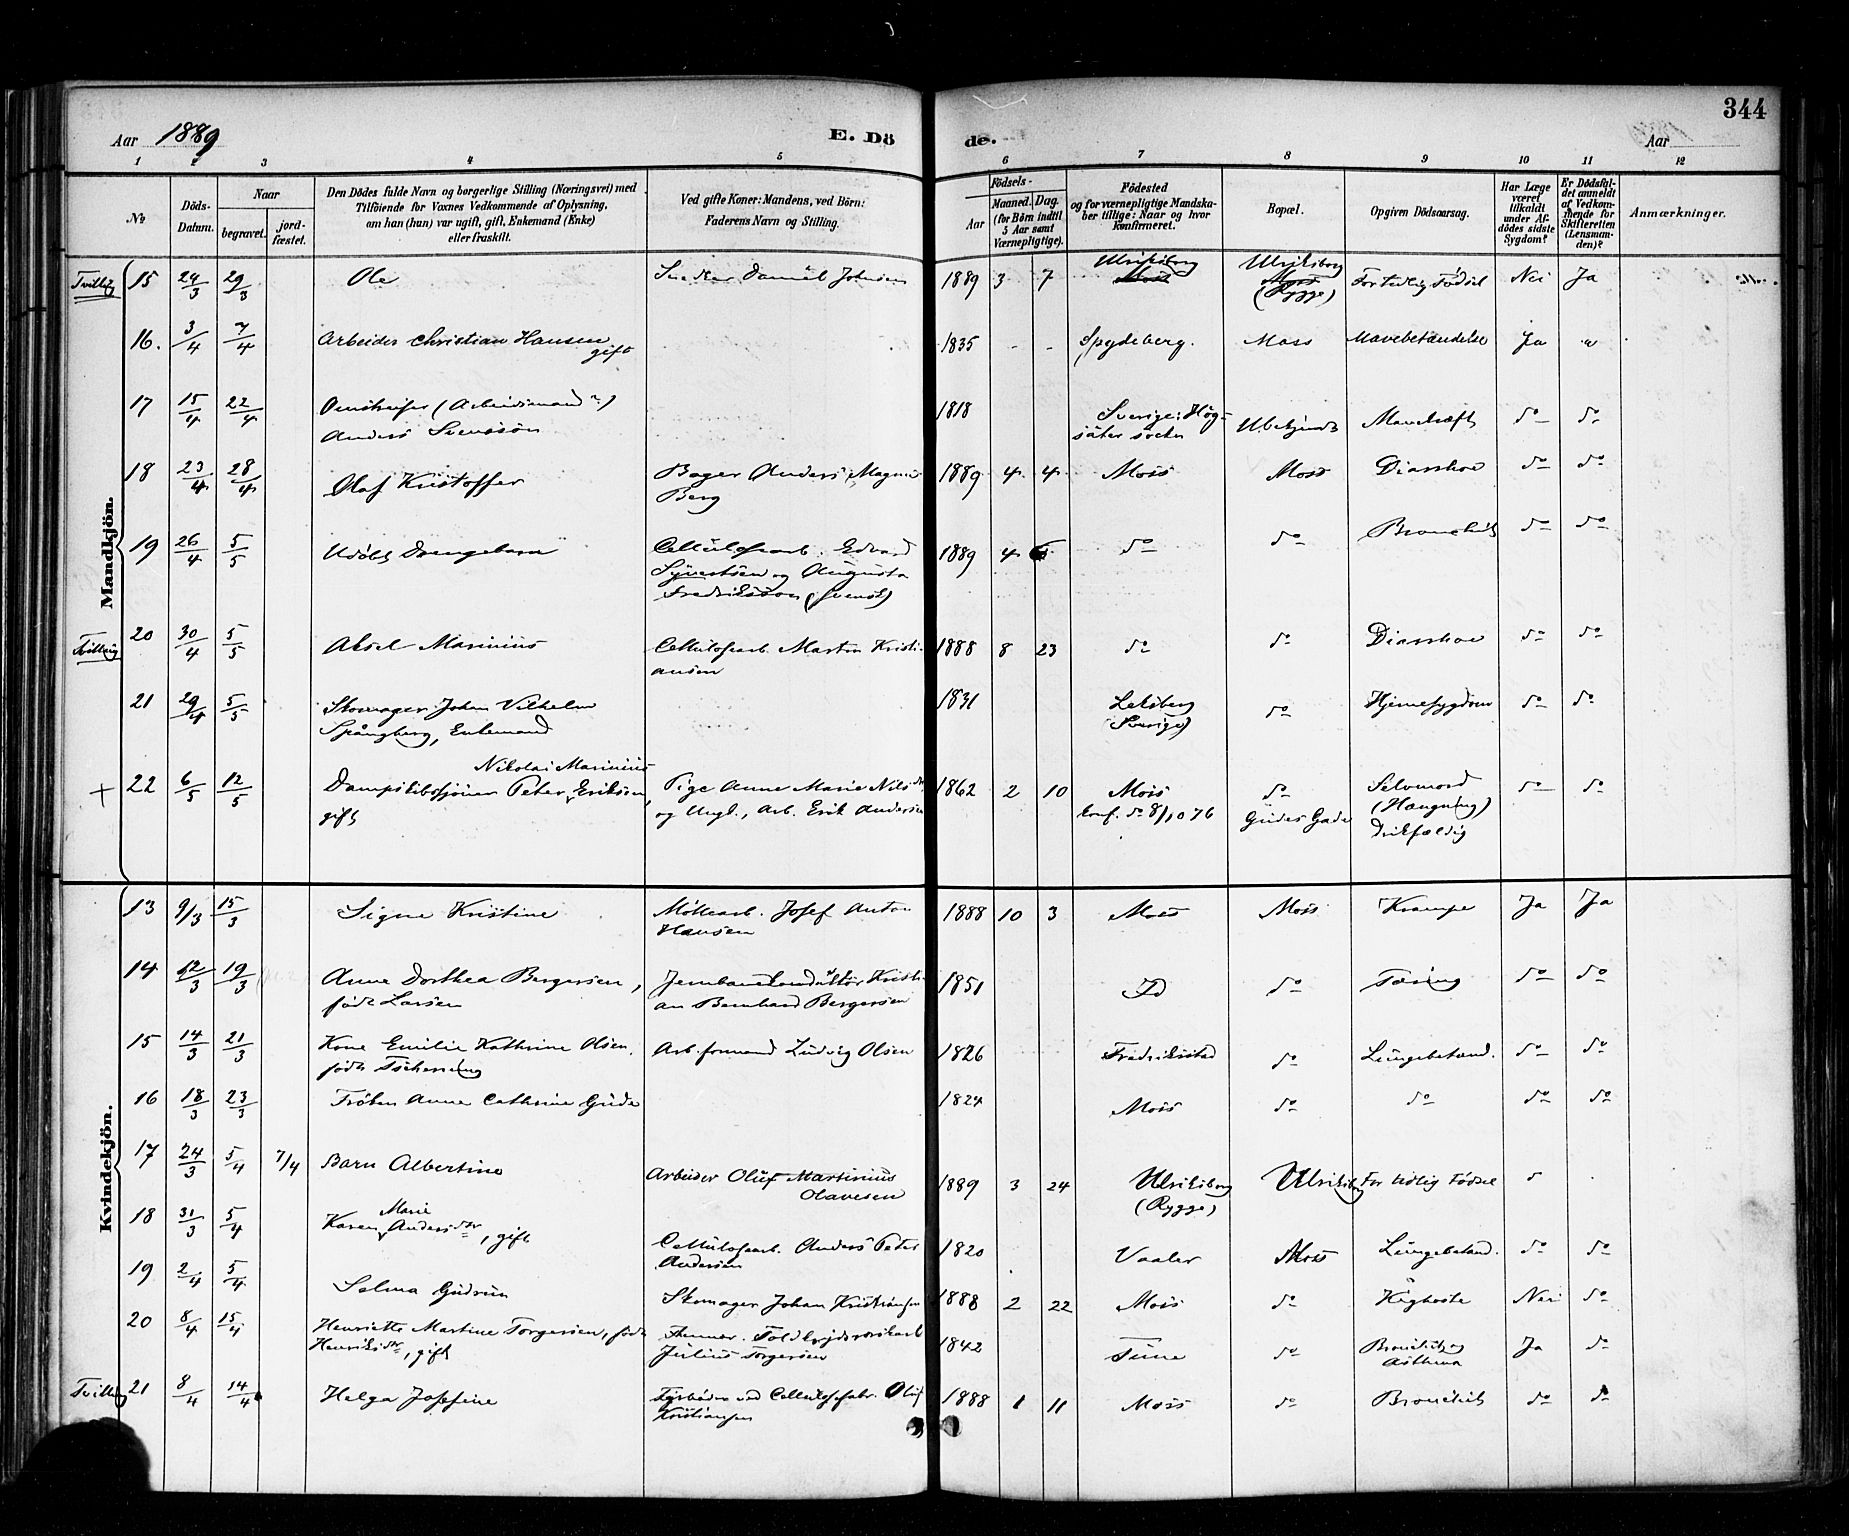 344
Aar 1889
E. Dö
de.
Aar
1 2 3 4 5 6 7 8 9 10 11 12
№
Döds-
Datum.
Naar
begravet.
jord-
fæstet.
Den Dödes fulde Navn og borgerlige Stilling (Næringsvei) med
Tilföiende for Voxnes Vedkommende af Oplysning,
om han (hun) var ugift, gift, Enkemand (Enke)
eller fraskilt.
Ved gifte Koner: Mandens, ved Börn:
Faderens Navn og Stilling.
Födsels-
Aar
Maaned.
Dag.
(for Börn indtil
5 Aar samt
Værnepligtige).
Födested
og for værnepligtige Mandska-
ber tillige: Naar og hvor
konfirmeret.
Bopæl.
Opgiven Dödsaarsag.
Har Læge
været
tilkaldt
under Af-
dödes sidste
Sygdom?
Er Dödsfal-
det anmeldt
af Vedkom-
mende for
Skifteretten
(Lensman-
den)?
Anmærkninger.
Mandkjön.
Tvilling 15 24/3 29/3 Ole Snedker Daniel Johnsen 1889 3 7 Ulriksborg Ulriksborg For tidlig Födsel Nei Ja
Moss Moss
(Rygge)
16. 3/4 7/4 Arbeider Christian Hansen 1835 - - Spydeberg. Moss Mavebetændelse Ja "
gift
17 15/4 22/4 (Arbeidsmand?) 1818 Sverige: Hög- Ubekjendt Mavekræft do do
Anders Svensson säter socken
18 23/4 28/4 Olaf Kristoffer Bager Anders Magnus 1889 4 4 Moss Moss Diarrhoe do do
Berg
19 26/4 5/5 Udöbt Drengebarn Cellulosearb. Edvard 1889 4 do do Bronchit do do
Syvertsen og Augusta
Fredriksson (svensk)
Tvilling 20 30/4 5/5 Aksel Marinius Cellulosearb. Martin Kristi- 1888 8 23 do do Diarrhoe do do
ansen
21 29/4 5/5 Skomager Johan Vilhelm 1831 Lekeberg do Hjernesygdom do do
Spångberg, Enkemand (Sverige)
Nikolai Marinius
+ 22 6/5 12/5 Dampskibsfyrbøder Peter Eriksen, Pige Anne Marie Nilsdtr 1862 2 10 Moss do Selvmord do do
gift og Ungk., Arb. Erik Andersen konf. do 8/10 76 Gudes Gade (Hængning)
Drikfældig
Kvindekjön.
13 9/3 15/3 Signe Kristine Möllearb. Josef Anton 1888 10 3 Moss Moss Krampe Ja Ja
Hansen
14 12/3 19/3 Anne Dorthea Bergersen, Jernbanekonduktör Kristi- 1851 Id do Tæring do do
födt Larsen an Bernhard Bergersen
15 14/3 21/3 Kone Emilie Kathrine Olsen, Arb.formand Ludvig Olsen 1826 Fredrikstad do Lungebetænd. do do
födt Tscherning
16 18/3 23/3 Fröken Anne Cathrine Gude 1824 Moss do do do do
17 24/3 5/4 7/4 Barn Albertine Arbeider Oluf Martinius 1889 3 24 Ulriksborg Ulriksborg For tidlig Födsel
Olavesen (Rygge)
Marie
18 31/3 5/4 Karen Andersdtr, gift Cellulosearb. Anders Peter 1820 Vaaler Moss Lungebetænd. do do
Andersen
19 2/4 5/4 Selma Gudrun Skomager Johan Kristiansen 1888 2 22 Moss do Kighoste Nei do
20 8/4 15/4 Henriette Martine Torgersen, födt 1842 Tune do Bronchit og Ja do
Henriksdtr, gift Julius Torgersen Asthma
Tvilling 21 8/4 14/4 Helga Josefine Fyrböder ved Cellulosefabr. Oluf 1888 1 11 Moss do Bronchit do do
Kristiansen